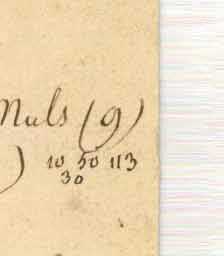 Muls (9)
) 10 50 113
30